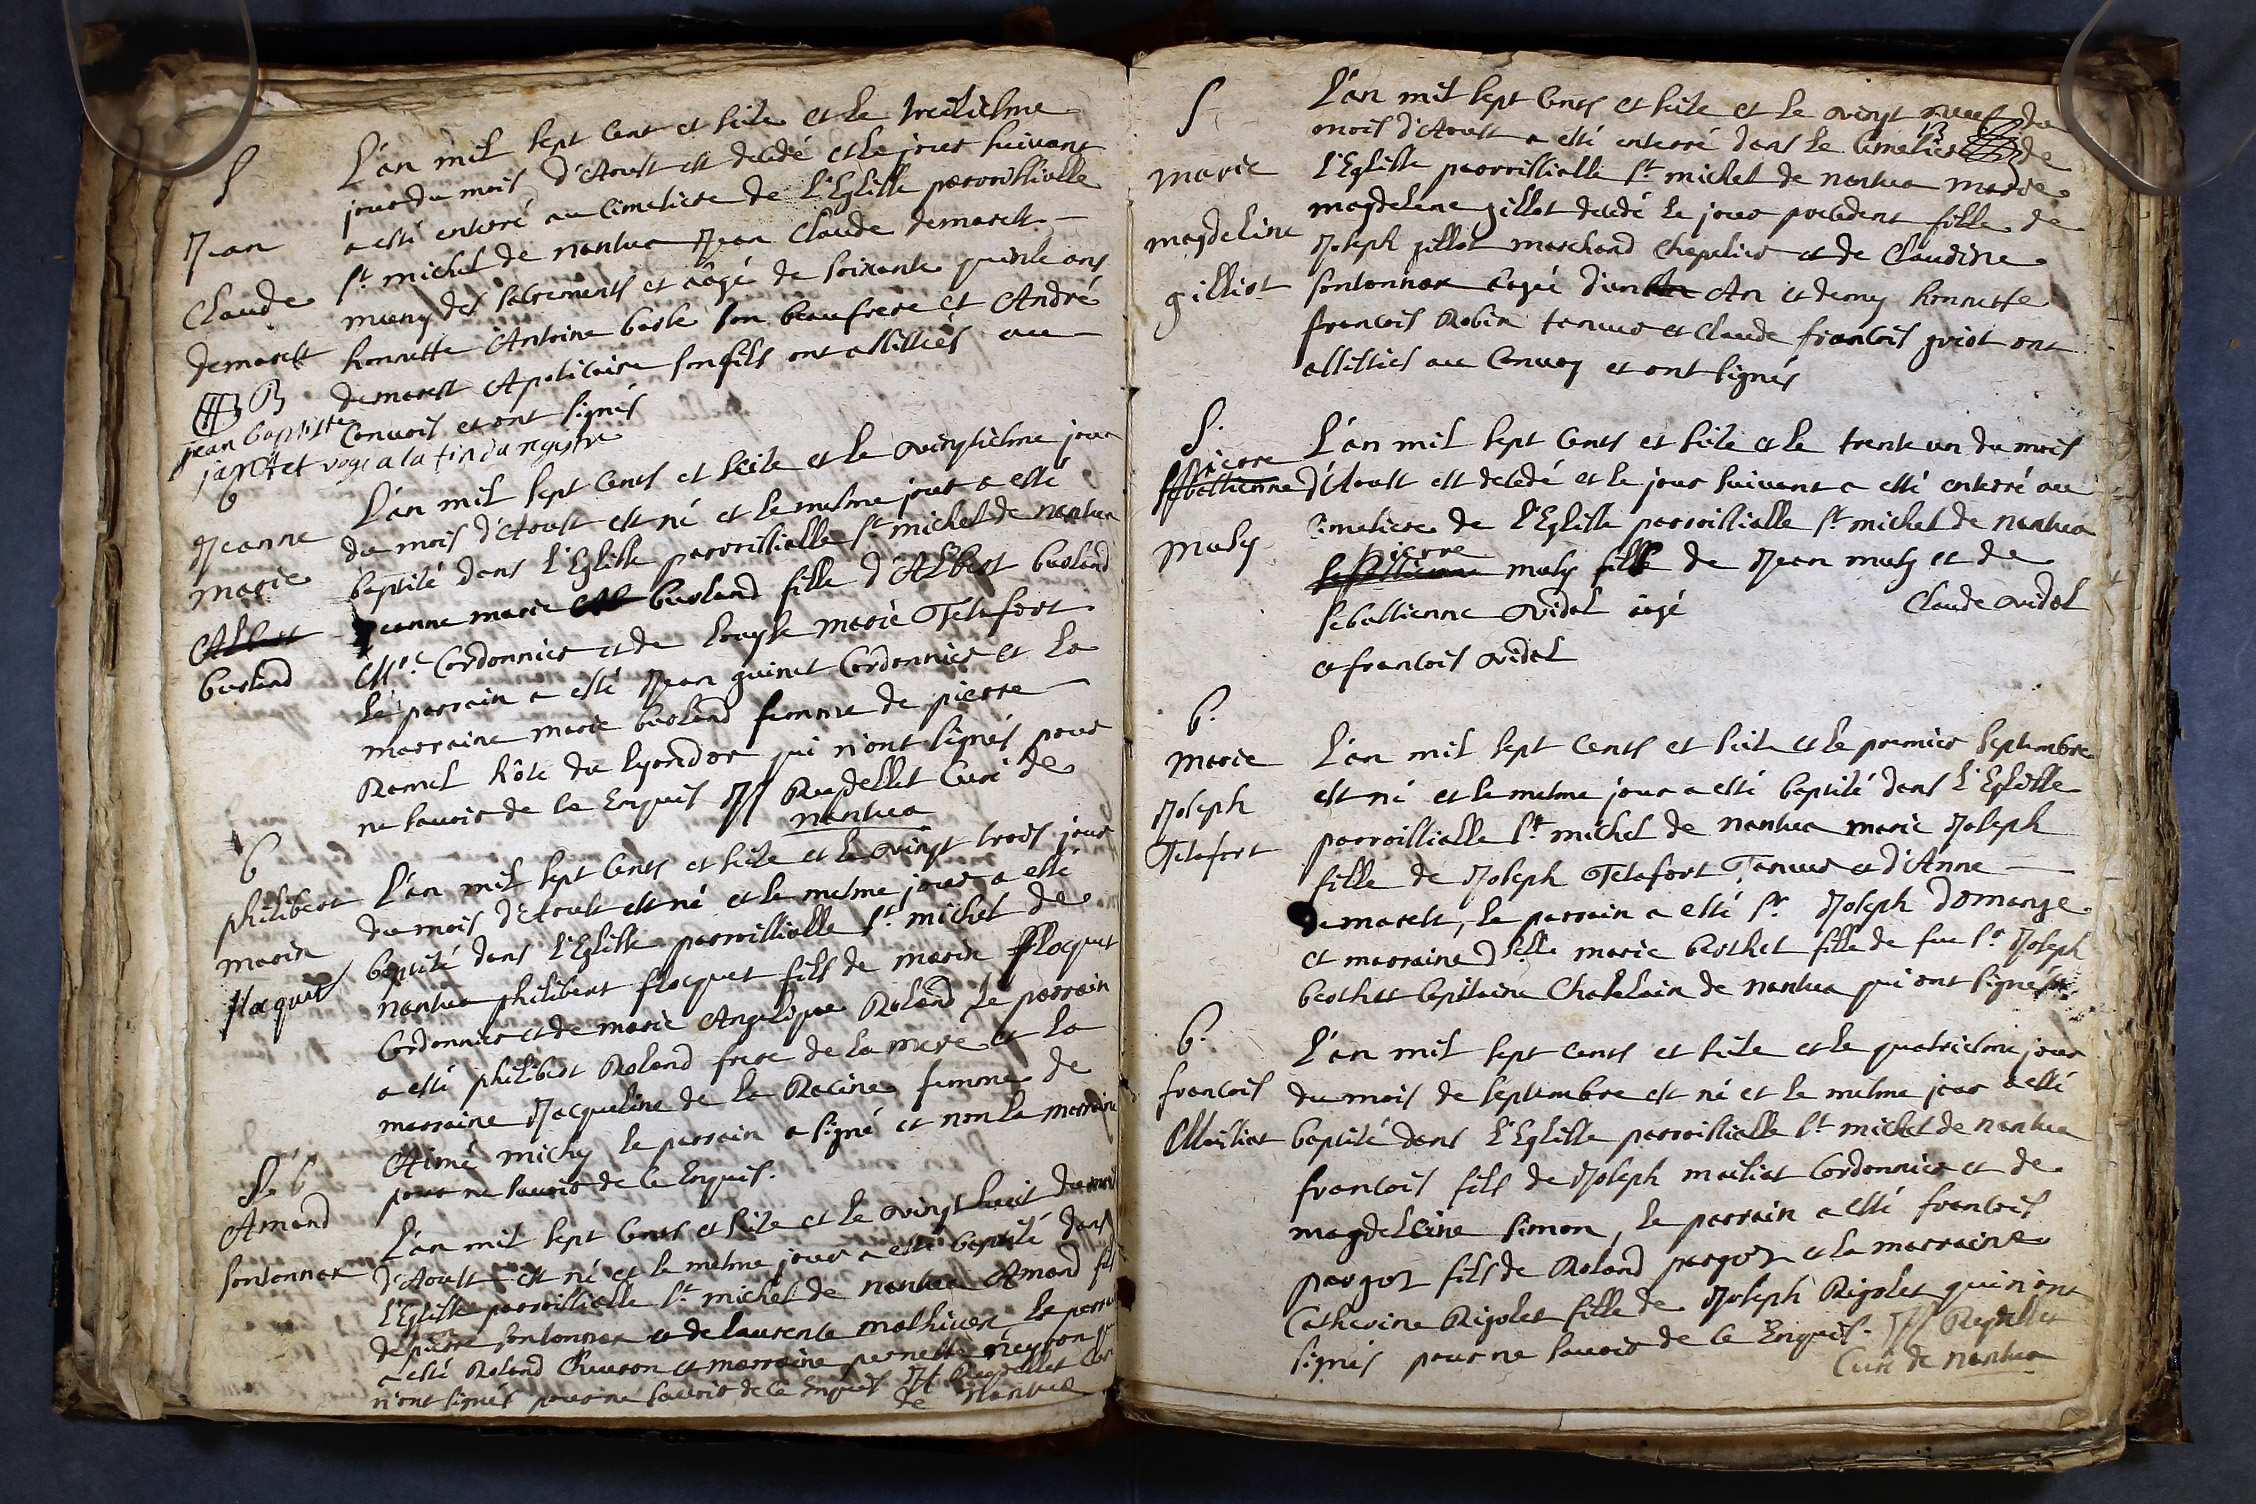 S
Jean
Claude
demarest
L'an mil sept cent et seize et le treiziesme
jour du mois d'Aoust est decedé et le jour suivant
a esté enterré au cimetiere de l'Eglisse parroissialle
st michel de nantua Jean Claude demarest
muny des sacrements et aâgé de soixante quinze ans
honneste Antoine son beaufrere et André
demarest Apoticaire son fils ont assistiés au
Convois et ont signés
B
jean baptiste
jantet voye a la fin du registre
b
Jeanne
marie
Albert
burland
L'an mil sept cents et seize et le vingtiesme jour
du mois d'Aoust est né et le mesme jour a esté
baptisé dans l'Eglisse parroissialle st michel de nantua
Jeanne marie burland fille d'Albert burland
Mtre Cordonnier et de marie Telafort
Le parrain a esté Jean guinet Cordonnier et la
marraine marie burland femme de pierre
Ramel hôte du lyondor qui n'ont signés pour
ne savoir de ce Enquis JF Reydellet Curé de
nantua
b
philibert
marin
flocquet
L'an mil sept cents et seize et le vingt trois jour
du mois d'Aoust est né et le mesme jour a esté
baptisé dans l'Eglisse parroissialle st michel de
nantua philibert flocquet fils de marin flocquet
Cordonnier et de marie Angelique Roland Le parrain
a esté philibert Roland frere de la mere et la
marraine Jacqueline de la Racine femme de
Aimé michy le parrain a signé et non la marraine
pour ne savoir de ce Enquis.
S. b
Amand
sontonnax
L'an mil sept Cents et seize et le vingt huit du mois
d'Aoust est né et le mesme jour a esté baptisé dans
l'Eglisse parroissialle st michel de nantua Amand fils
de pierre sontonnax et de laurence mathieux Le parrain
a esté Roland et marraine pernette neyron
n'ont signés pour ne savoir de ce Enquis JF Reydellet Curé
de Nantua
S
marie
magdeline
gilliot
L'an mil sept Cents et seize et le vingt neuf du
mois d'Aoust a esté enterré dans le Cimetiere de
l'Eglisse parroissialle st michel de nantua marie
magdelene gillot decedé le jour precedent fille de
Joseph gillot marchand Chapelier et de Claudine
sontonnax aagé d'un An et demy honneste
francois Robin tanneur et Claude francois griot ont
assistiés au Convoy et ont signés
S.
pierre
sebastienne
muly
L'an mil sept Cents et seize et le trente un du mois
d'Aoust est decedé et le jour suivant a esté enterré au
Cimetiere de l'Eglisse parroissialle st michel de nantua
pierre
sebastienne muly fille de Jean muly et de
sebastienne vidal aagé Claude vidal
et francois vidal
b.
marie
Joseph
Telafort
L'an mil sept cents et seize et le premier septembre
est né et le mesme jour a esté baptisé dans l'Eglisse
parroissialle st michel de nantua marie Joseph
fille de Joseph Telafort Tanneur et d'Anne
demarest, le parrain a esté sr Joseph Domange
et marraine Dselle marie berthet fille de feu sr Joseph
berthet Capitaine Chatelain de nantua qui ont signés
b.
francois
Mailiat
L'an mil sept cents et seize et le quatriesme jour
du mois de septembre est né et le mesme jour a esté
baptisé dans l'Eglisse parroissialle st michel de nantua
francois fils de Joseph mailiat Cordonnier et de
magdeleine simon, le parrain a esté francois
pargoz fils de Roland pargoz et la marraine
Catherine Rigolet fille de Joseph Rigolet qui n'ont
signés pour ne savoir de ce Enquis. JF Reydellet
Curé de nantua